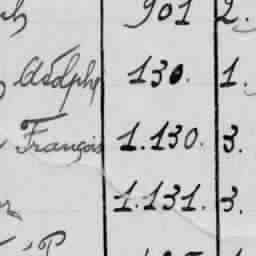 901 2.
Adolphe 130. 1.
François 1.130. 3.
1.131. 3.